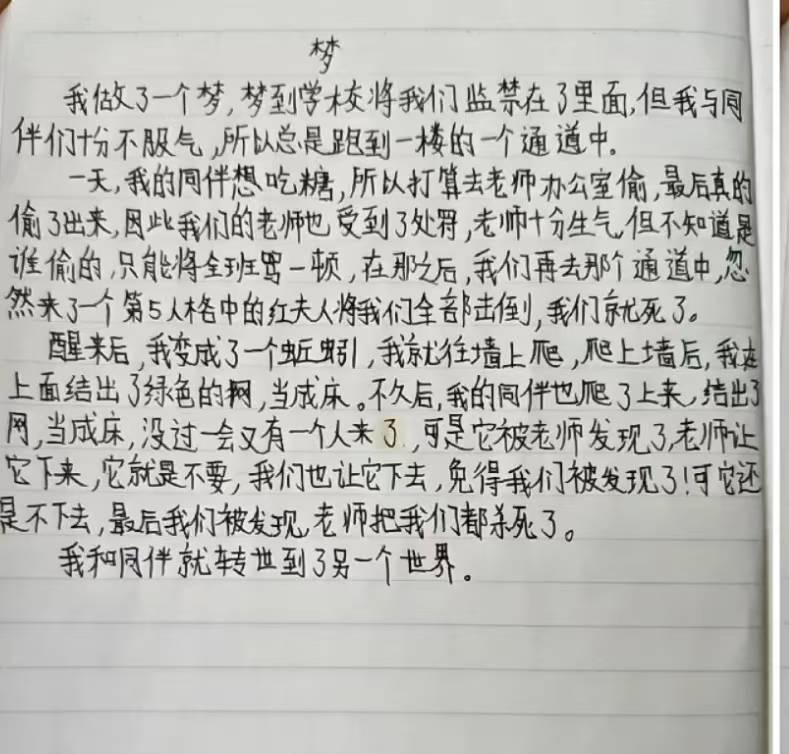 梦
我做了一个梦,梦到学校将我们监禁在了里面,但我与同
伴们十份不服气,所以总是跑到一楼的一个通道中。
一天,我的同伴想吃糖,所以打算去老师办公室偷,最后真的
偷了出来,因此我们的老师也受到了处罚,老师十分生气,但不知道是
谁偷的,只能将全班骂一顿,在那之后,我们再去那个通道中,忽
然来了一个第5人格中的红夫人将我们全部击倒,我们就死了。
醒来后,我变成了一个蚯蚓,我就往墙上爬,爬上墙后,我在
上面结出了绿色的网,当成床。不久后,我的同伴也爬了上来,结出了
网,当成床,没过一会又有一个人来了,可是它被老师发现了,老师让
它下来,它就是不要,我们也让它下去,免得我们被发现了!可它还
是不下去,最后我们被发现,老师把我们都杀死了。
我和同伴就转世到了另一个世界。